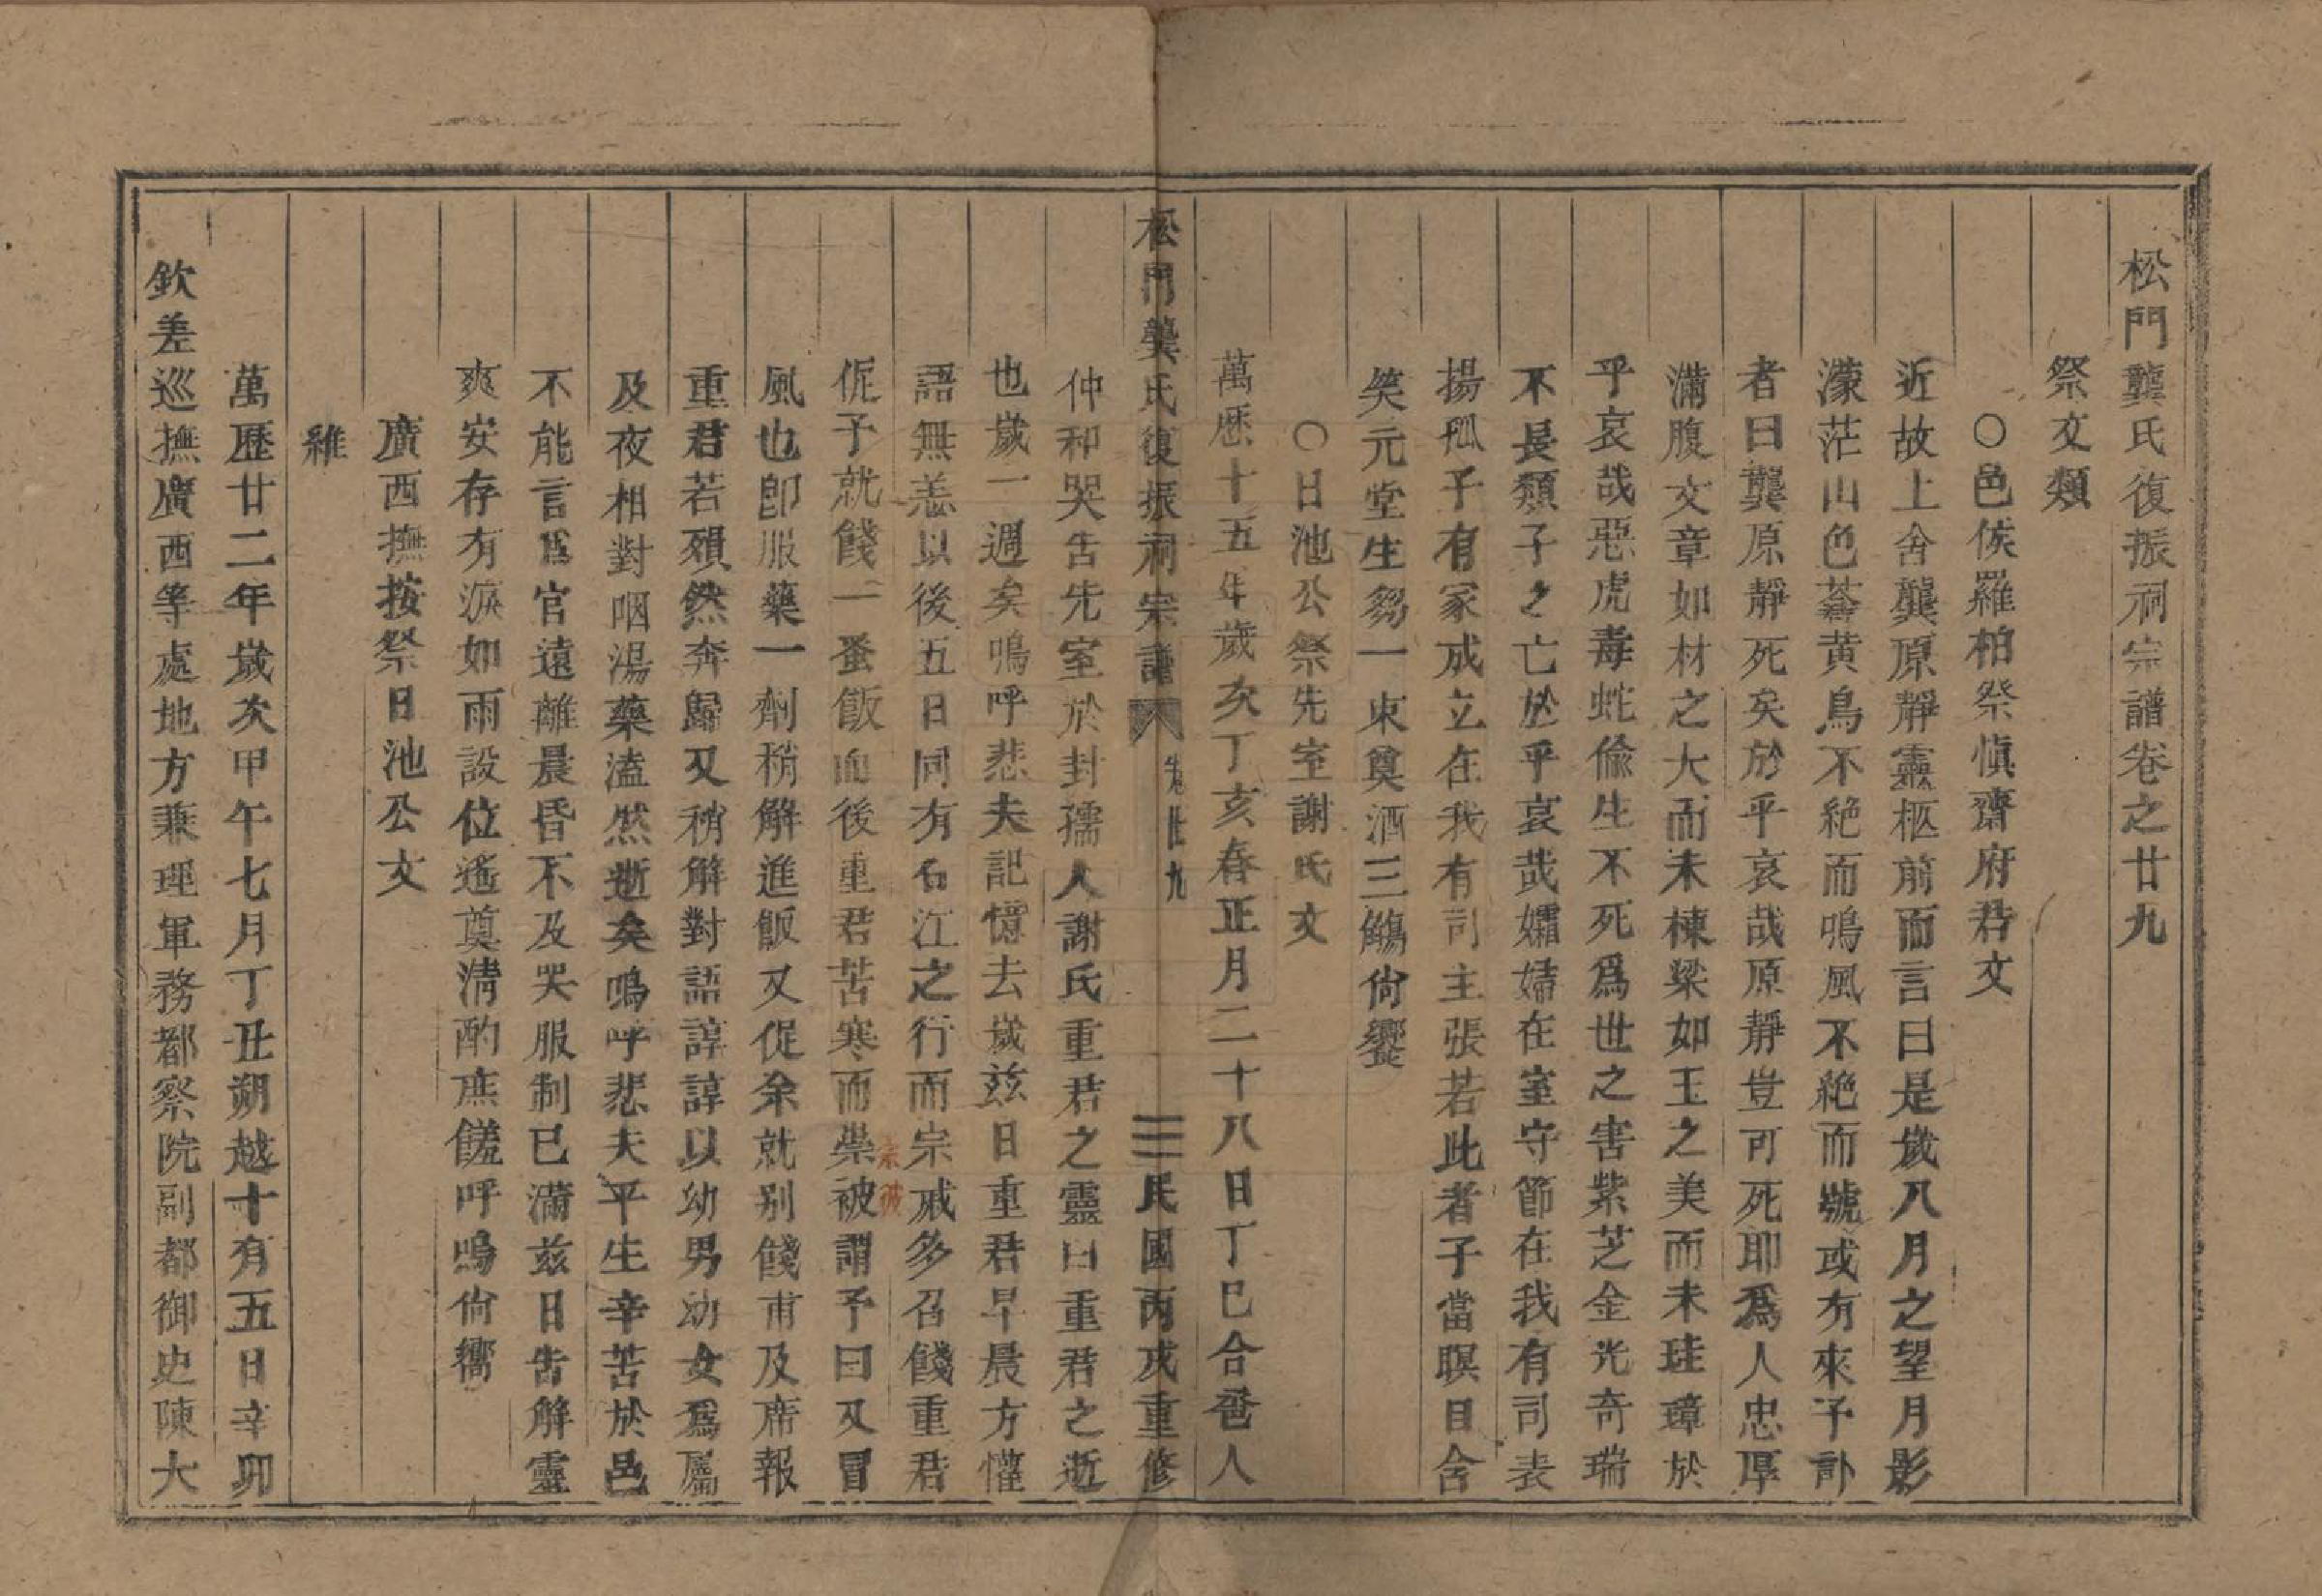 松門龔氏復振祠宗譜卷之廿九
祭文類
○邑侯羅柏祭愼齋府君文
近故上舍龔原靜靈柩前而言曰是歲八月之望月影
濛茫山色蒼黃鳥不絶而鳴風不絶而號或有來予訃
者曰龔原靜死矣於乎哀哉原靜豈可死耶爲人忠厚
滿腹文章如材之大而未棟梁如玉之美而未珪璋於
乎哀哉惡虎毒蛇偷生不死爲世之害紫芝金光奇瑞
不長類子之亡於乎哀哉孀婦在室守節在我有司表
揚孤子有家成立在我有司主張若此者子當瞑目含
笑元堂生芻一束奠酒三觴尙饗
○日池公祭先室謝氏文
萬厯十五年歲次丁亥春正月二十八日丁巳合巹人
松門龔氏復振祠宗譜 卷廿九 民國丙戌重修
仲和哭告先室於封孺人謝氏重君之靈曰重君之逝
也歲一週矣鳴呼悲夫記憶去歲兹日重君早晨方懽
語無恙以後五日同有石江之行而宗戚多召餞重君
伲予就餞一蚤飯而後重君苦寒而祟被謂予曰又冒
風也卽服藥一劑稍解進飯又促余就别餞甫及席報
重君若殞然奔歸又稍解對語諄諄以幼男幼女爲屬
及夜相對咽湯藥溘然逝矣嗚呼悲夫平生辛苦於邑
不能言爲官遠離晨昏不及哭服制已滿兹日告解靈
爽安存有淚如雨設位遙奠淸酌庶饈呼嗚尙饗
廣西撫按祭日池公文
維
萬歷廿二年歲次甲午七月丁丑朔越十有五日辛卯
欽差巡撫廣西等處地方兼理軍務都察院副都御史陳大